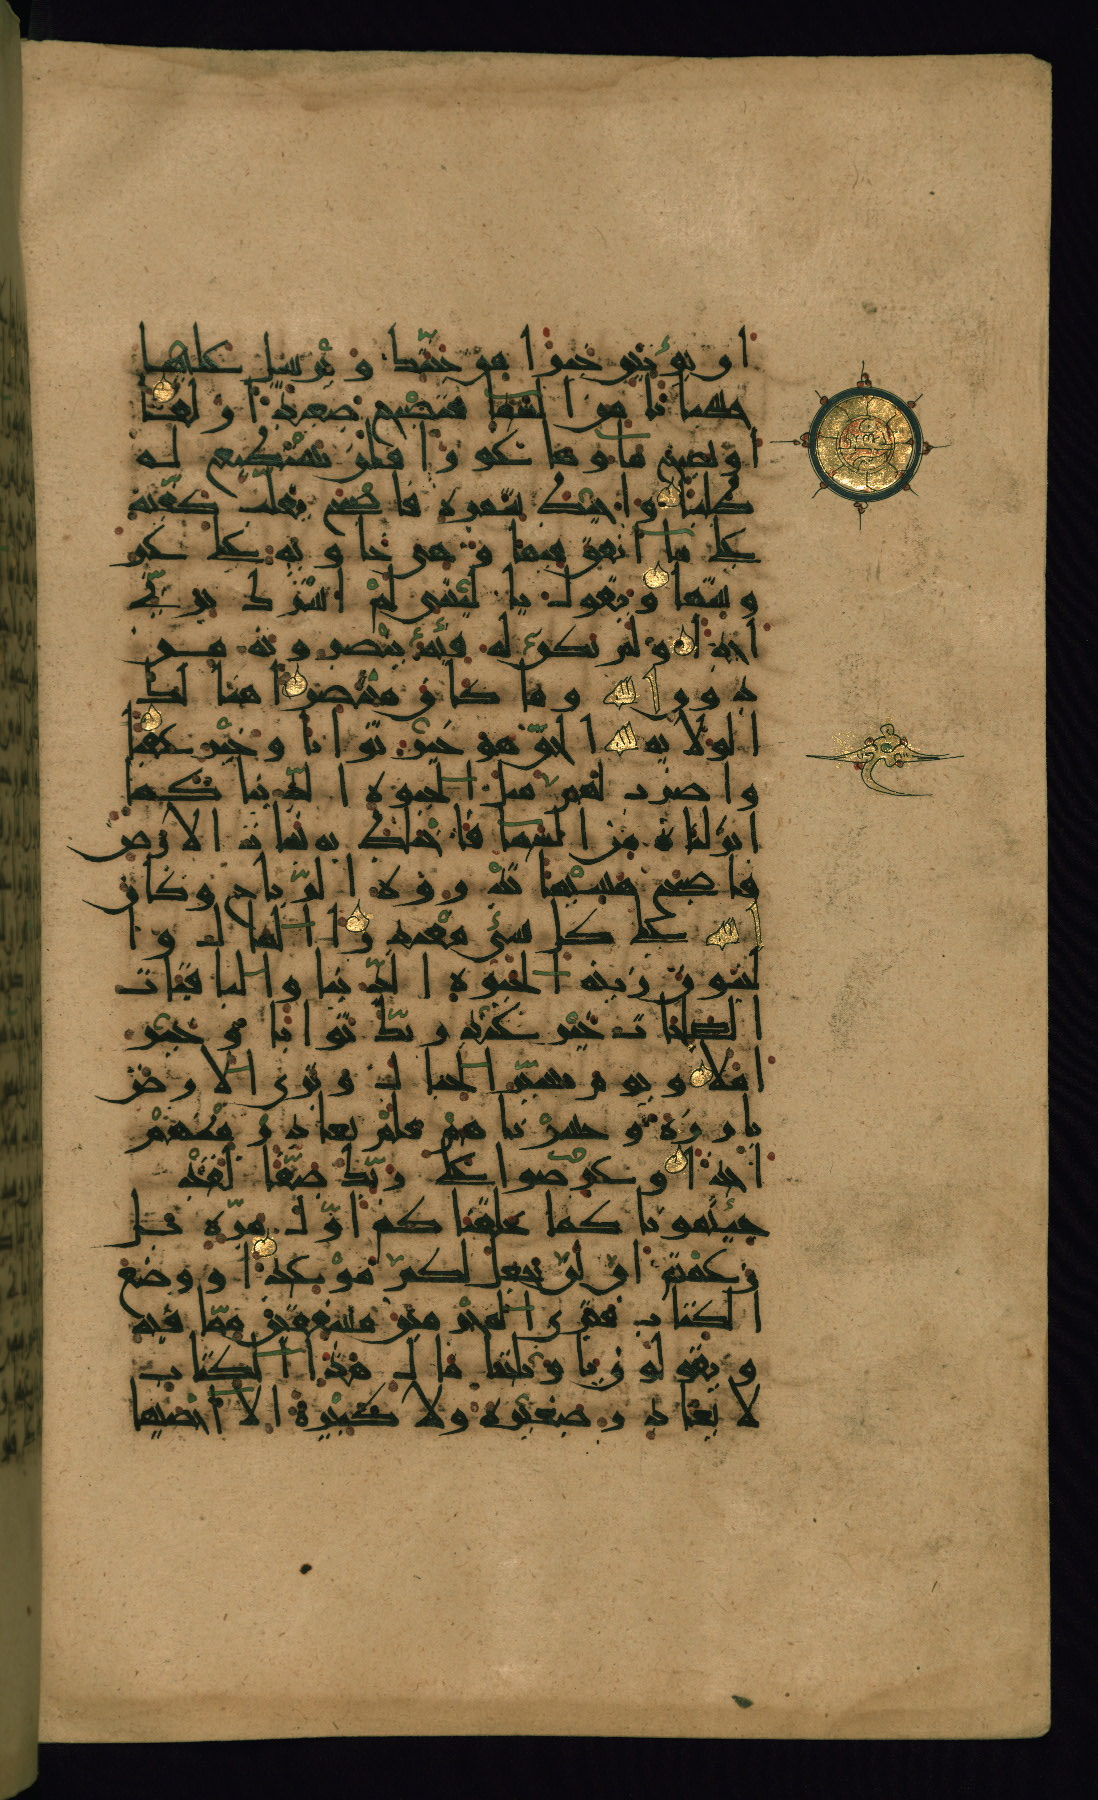 ان يؤتين خيرا من جنتك ويرسل عليها
حسبانا من السما فتصبح صعيدا زلقا
او يصبح ماوها غورا فلن تستطيع له
طلبا واحيط بثمره فاصبح يقلب كفيه
على ما انفق فيها وهي خاوية على عر
وشها ويقول يا ليتني لم اشرك بربي
احدا ولم تكن له فئة ينصرونه من
دون الله وما كان منتصرا هنالك
الولاية لله الحق هو خير ثوابا وخير عقبا
واضرب لهم مثل الحيوة الدنيا كما
انزلناه من السما فاختلط به نبات الارض
فاصبح هشيما تذروه الرياح وكان
الله على كل شئ مقتدرا المال وا
لبنون زينة الحيوة الدنيا والباقيات
الصلحات خير عند ربك ثوابا وخير
املا ويوم نسير الجبال وترى الارض
بارزة وحشرناهم فلم نغادر منهم
احدا وعرضوا على ربك صفا لقد
جئتمونا كما خلقناكم اول مرة بل
زعمتم ان لن نجعل لكم موعدا ووضع
الكتاب فترى المجرمين مشفقين مما فيه
ويقولون يا ويلتنا مال هذا الكتاب
لا يغادر صغيرة ولا كبيرة الا احصيها